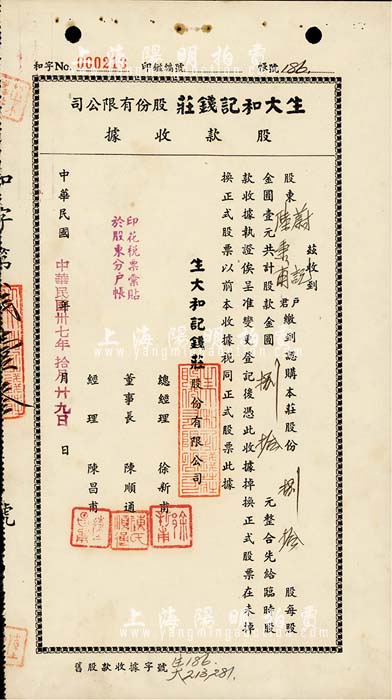 和字No. 000213 印鑑編號 帳號 186.
生大和記錢莊股份有限公司
股款收據
茲收到
股東 蔚記 陸秉甫 戶君 繳到認購本莊股份 捌拾 股每股
金圓壹元共計股款金圓 捌拾 元整合先給臨時股
款收據執證俟呈准變更登記後憑此收據掉換正式股票在未掉
換正式股票以前本收據視同正式股票此據
生大和記錢莊股份有限公司
總經理 徐新甫
董事長 陳順通
經理 陳昌甫
印花稅票彙貼
於股東分戶帳
中華民國 年 月 日
中華民國卅七年拾月廿九日
和字第 貳壹叁 號
舊股款收據字號 生186. 大213,281.
上海陽明拍賣
www.yangmingauction.com